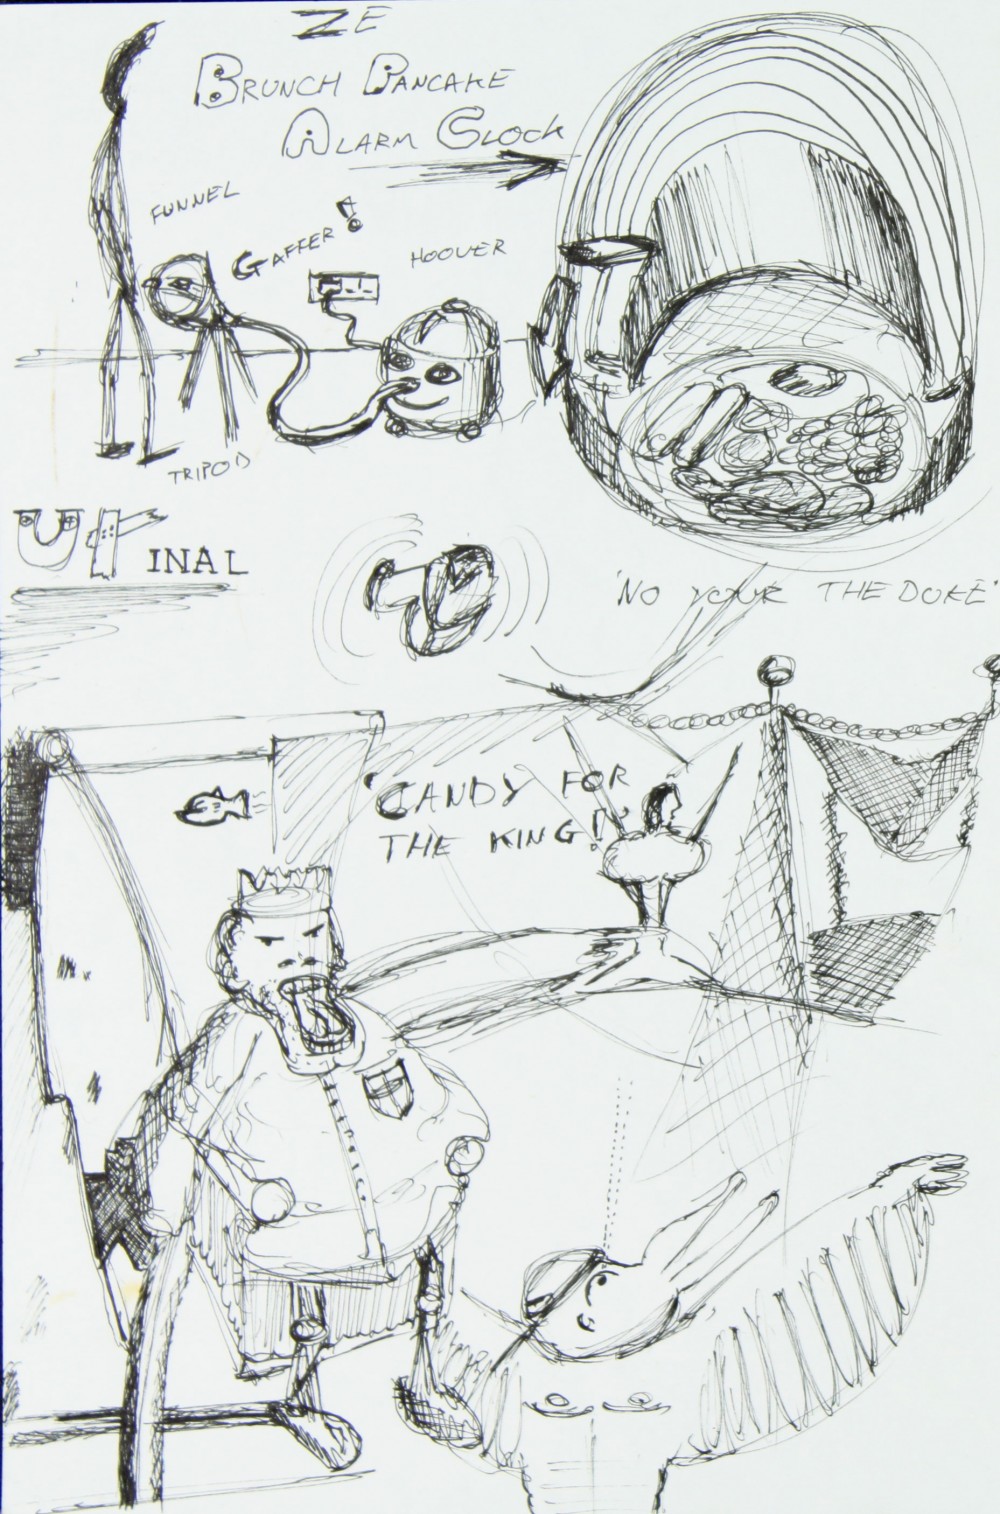 ZE
BRUNCH PANCAKE
ALARM CLOCK
FUNNEL
GAFFER!
HOOVER
TRIPOD
URINAL
'NO YOUR THE DUKE'
'CANDY FOR
THE KING!'